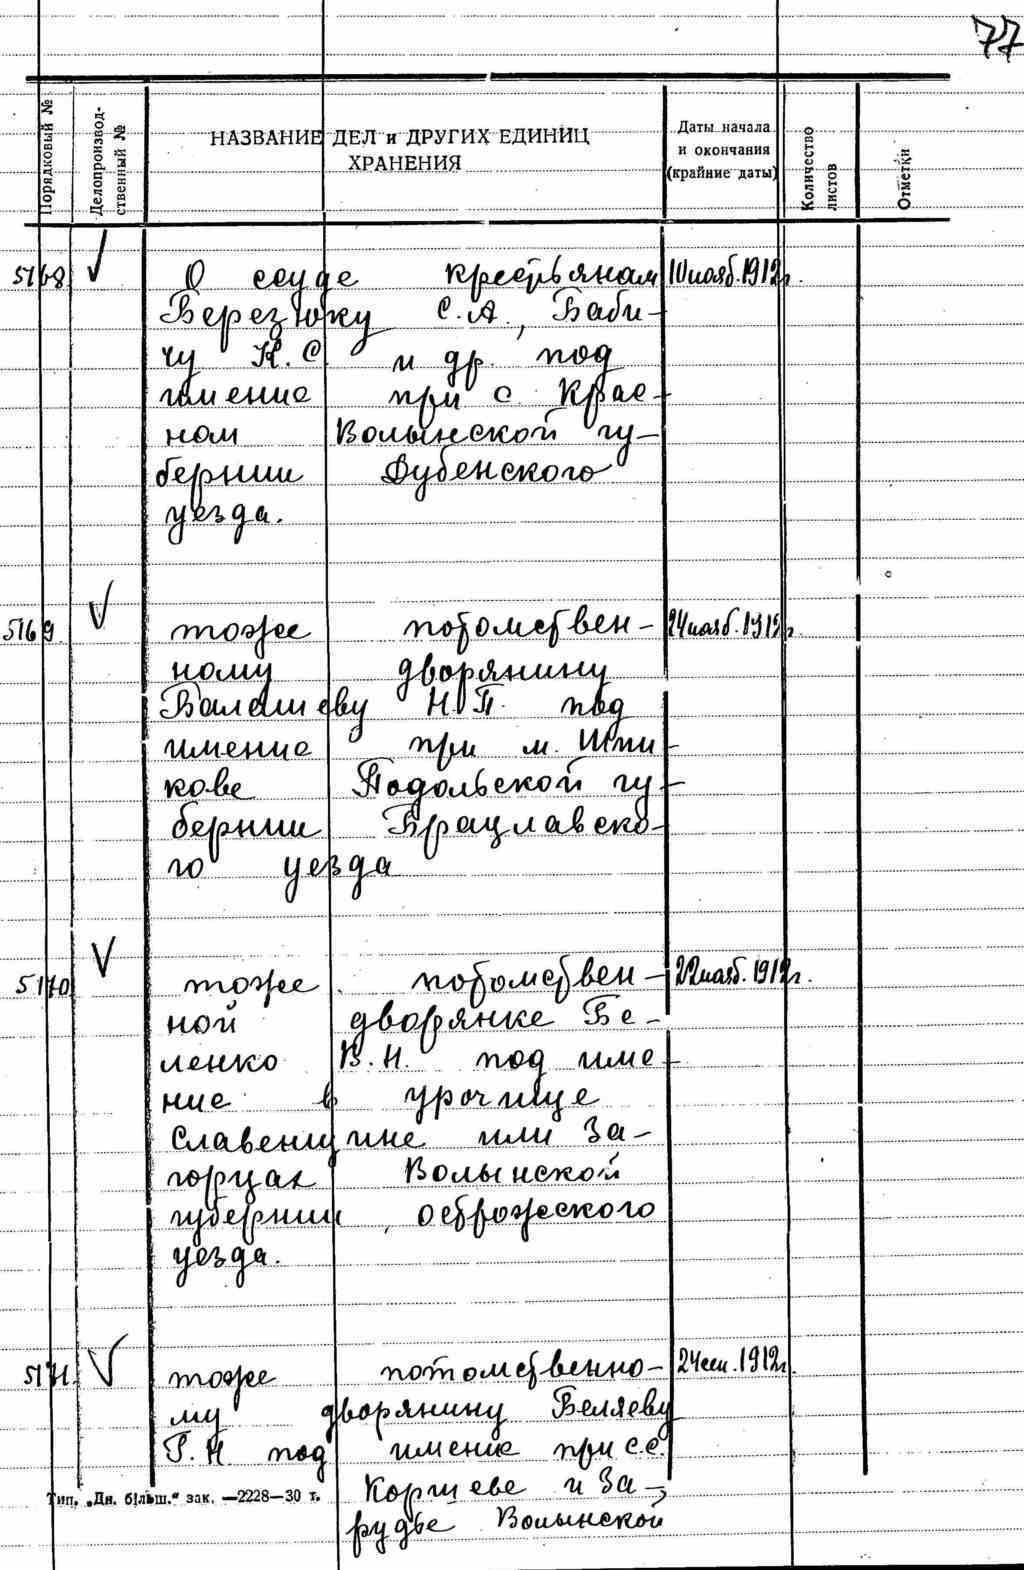 77
Порядковый №
Делопроизвод-
ственный №
НАЗВАНИЕ ДЕЛ и ДРУГИХ ЕДИНИЦ
ХРАНЕНИЯ
Даты начала
и окончания
(крайние даты)
Количество
листов
Отметки
5168 √ О ссуде крестьянам 10 нояб. 1912 г.
Березюку С.А., Баби-
чу К.С. и др. под
имение при с. Крас-
ном Волынской гу-
бернии Дубенского
уезда.
5169 √ тоже потомствен- 24 нояб. 1912 г.
ному дворянину
Балашеву Н.П. под
имение при м. Шпи-
кове Подольской гу-
бернии Брацлавско-
го уезда
5170 √ тоже потомствен- 22 нояб. 1912 г.
ной дворянке Бе-
ленко В.Н. под име-
ние в урочище
Славенщине или За-
горцах Волынской
губернии, острожского
уезда.
5171. √ тоже потомственно- 24 сен. 1912 г.
му дворянину Беляеву
Г.Н под имение при с.с.
Коршеве и За-
рудье Волынской
Тип. „Дн. більш.“ зак. —2228—30 т.